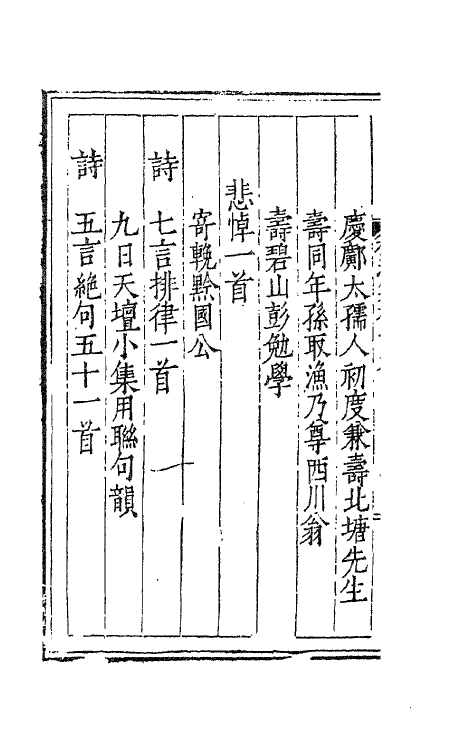 慶鄺太孺人初度兼壽北塘先生
壽同年孫取漁乃尊西川翁
壽碧山彭勉學
悲悼一首
寄輓黔國公
詩 七言排律一首
九日天壇小集用聯句韻
詩 五言絕句五十一首